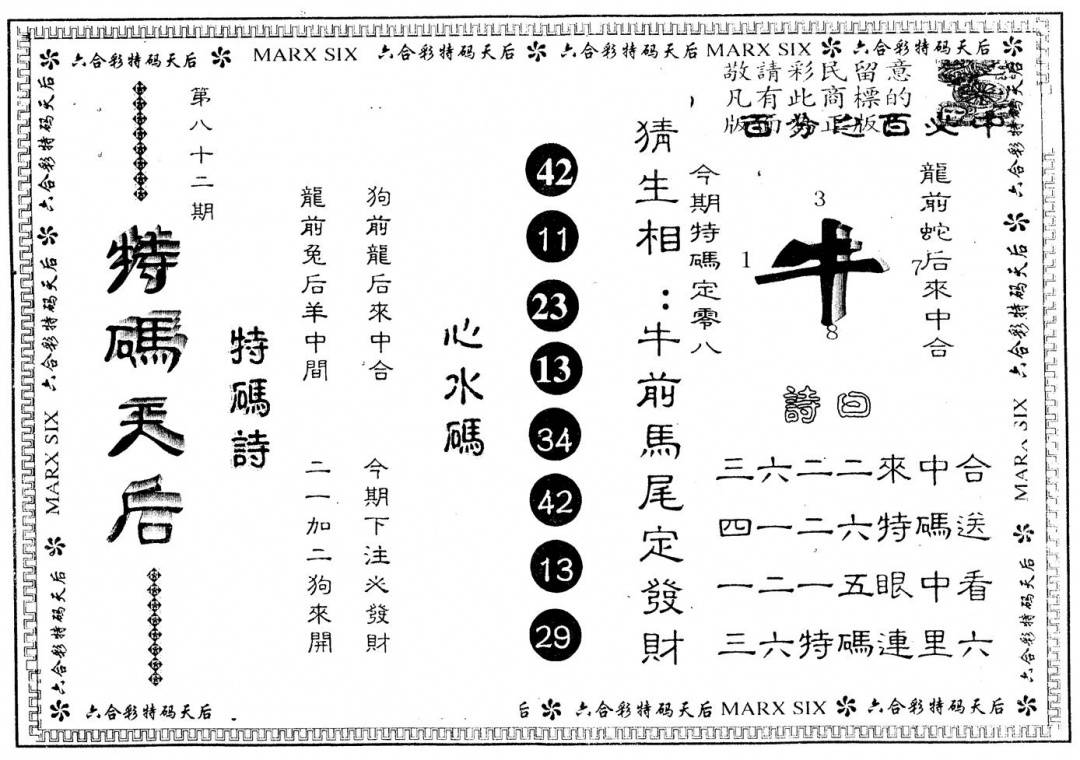 六合彩特码天后 MARX SIX 六合彩特码天后 六合彩特码天后 MARX SIX 六合彩特码天后
六合彩特码天后
六合彩特码天后
六合彩特码天后
MARX SIX
六合彩特码天后
第八十二期
特碼天后
特碼詩
狗前龍后來中合
龍前兔后羊中間
今期下注必發財
二一加二狗來開
心水碼
42
11
23
13
34
42
13
29
猜生相：牛前馬尾定發財
今期特碼定零八
敬請彩民留意
凡有此商標的
百分之百必中
龍前蛇后來中合
3
1
牛
7
8
詩曰
三六二二來中合
四一二六特碼送
一二一五眼中看
三六特碼連里六
六合彩特码天后
六合彩特码天后
六合彩特码天后
六合彩特码天后
六合彩特码天后
后 六合彩特码天后 MARX SIX 六合彩特码天后